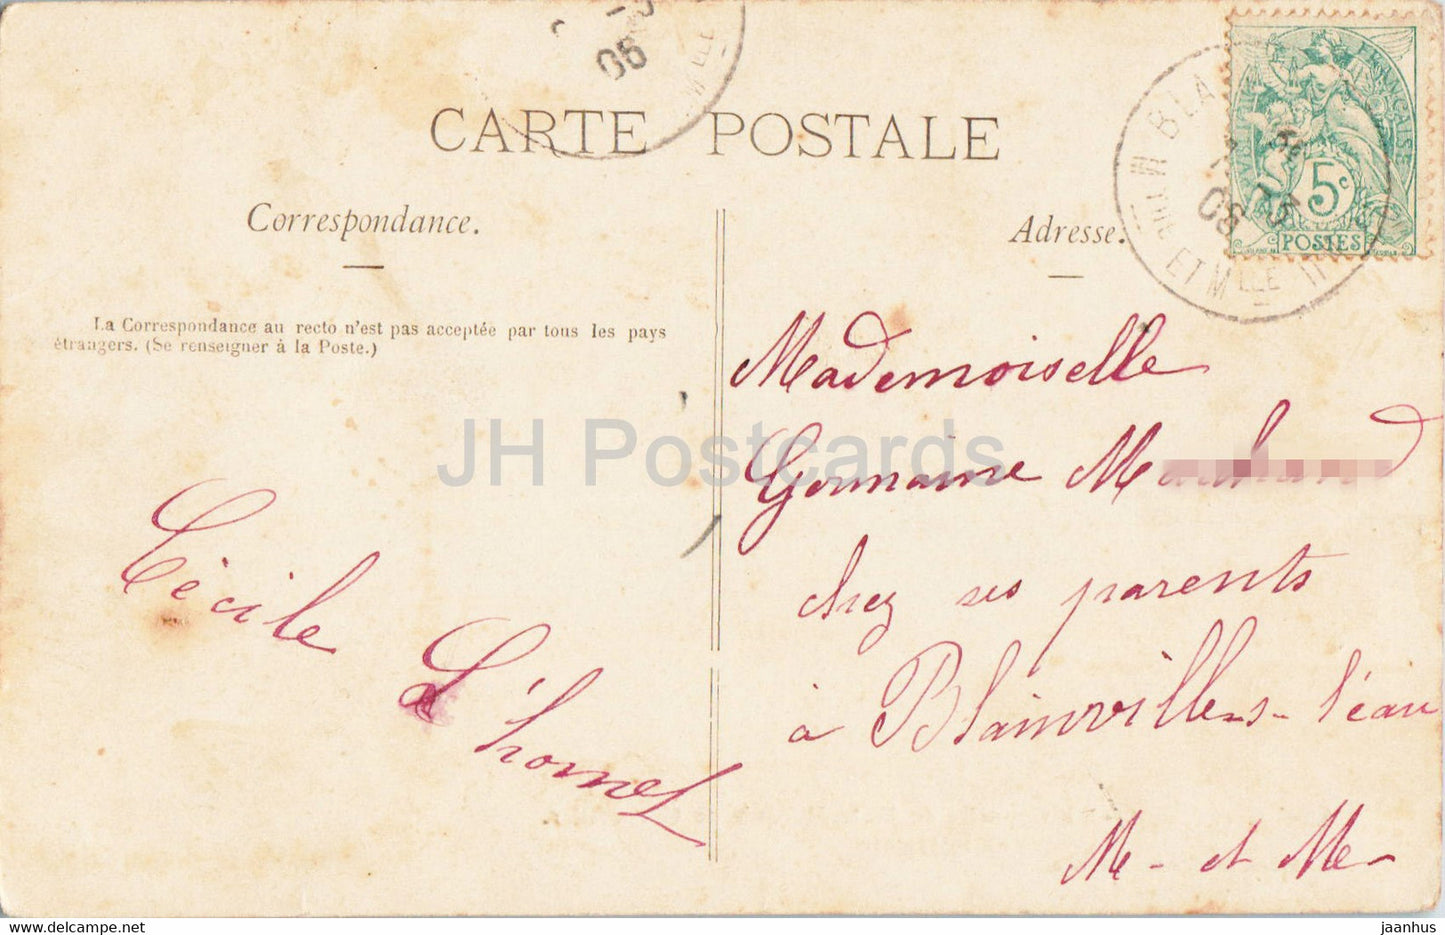 06
CARTE POSTALE
Correspondance.
Adresse.
La Correspondance au recto n'est pas acceptée par tous les pays
étrangers. (Se renseigner à la Poste.)
FRANÇAISE
5c
POSTES
BLA
ET MLLE
Mademoiselle
Germaine
chez ses parents
à Blainville-s-l'eau
M- et M-
Cécile
L'homel
JH Postcards
jaanhus